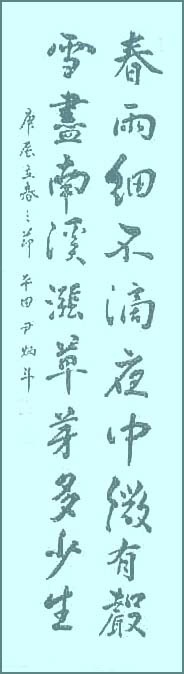 春雨細不滴夜中微有聲
雪盡南溪漲草芽多少生
庚辰立春之節 平田 尹炳斗